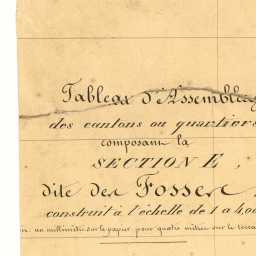 Tableau d'Assemblage
des cantons ou quartiers
composant la
SECTION E,
dite des Fosses
construit à l'échelle de 1 à 4,00
un millimètre sur le papier pour quatre mètres sur le terra